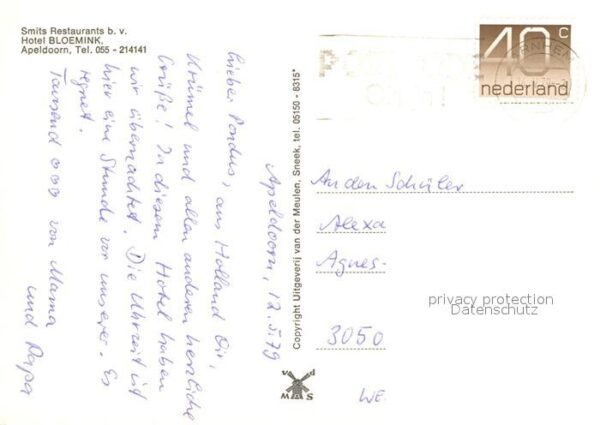 Smits Restaurants b. v.
Hotel BLOEMINK,
Apeldoorn, Tel. 055 - 214141
Apeldoorn, 12.5.79
Lieber Pondus, aus Holland Dir,
Krümel und allen anderen herzliche
Grüße! In diesem Hotel haben
wir übernachtet. Die Uhrzeit ist
hier eine Stunde vor unserer. Es
regnet.
Tausend von Mama
und Papa
Copyright Uitgeverij van der Meulen, Sneek, tel. 05150 - 8315*
40 c
nederland
An den Schüler
Alexa
Agnes-
privacy protection
Datenschutz
3050
WE.
v d
M S